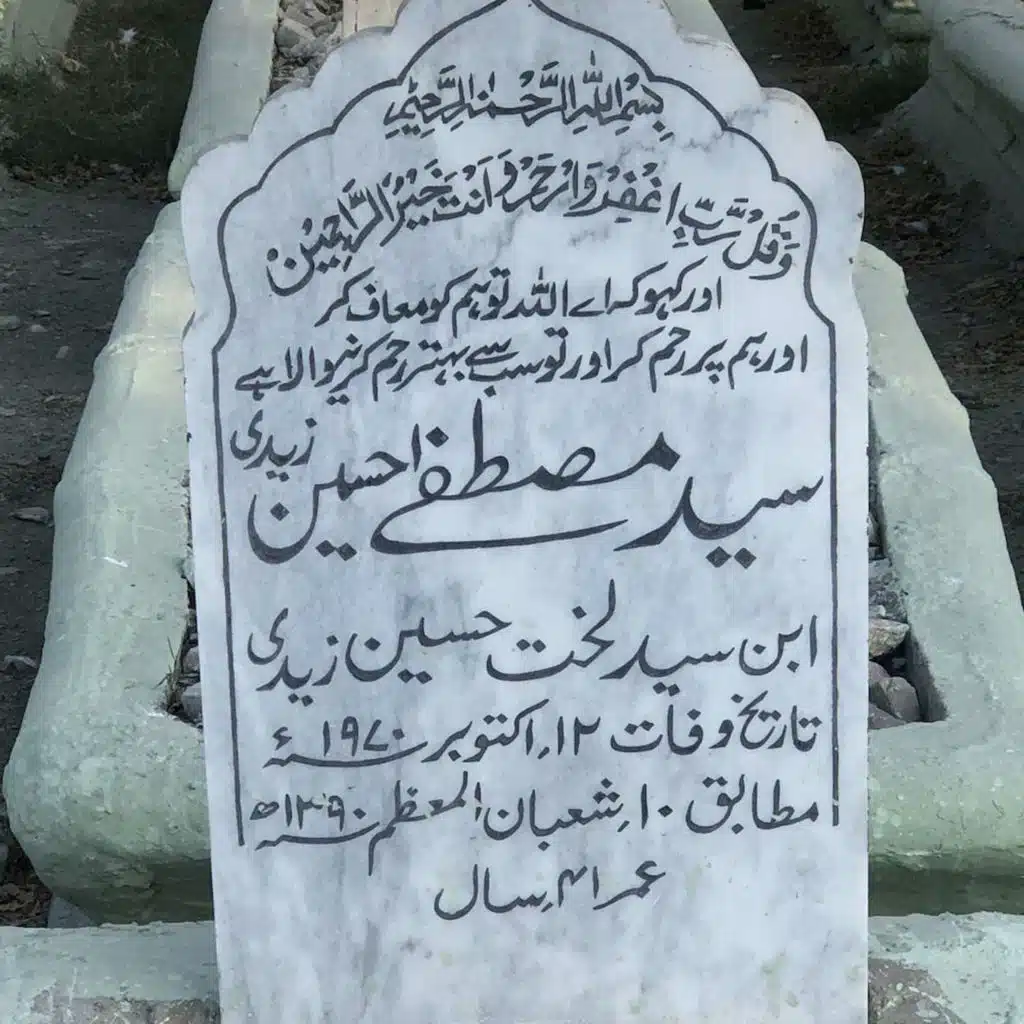 بِسْمِ اللّٰهِ الرَّحْمٰنِ الرَّحِيْمِ
وَقُلْ رَّبِّ اغْفِرْ وَارْحَمْ وَاَنْتَ خَيْرُ الرَّاحِمِيْنَ
اور کہو کہ اے اللہ تو ہم کو معاف کر
اور ہم پر رحم کر اور تو سب سے بہتر رحم کرنیوالا ہے
سید مصطفےٰ حسین زیدی
ابن سید لخت حسین زیدی
تاریخ وفات ۱۲؍ اکتوبر ۱۹۷۰ء
مطابق ۱۰؍ شعبان المعظم ۱۳۹۰ھ
عمر ۴۱؍ سال